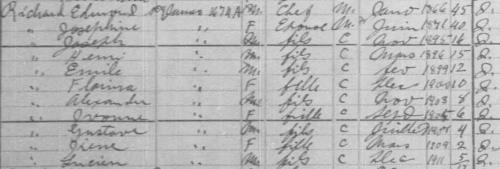 Richard Edmond St James 167 M. Chef M. Janv 1866 45 Q.
" Josephine " F Épouse M Juin 1871 40 Q.
" Joseph " M. fils C Nov 1895 16 Q.
" Henri " M. fils C Mars 1896 15 Q.
" Emile " M. fils C fev 1899 12 Q.
" Florina " F fille C Dec 1900 10 Q.
" Alexandre " M. fils C Nov 1903 8 Q.
" Yvonne " F fille C Sept 1905 6 Q.
" Gustave " M. fils C Juillet 4 Q.
" Irene " F fille C Mar 1909 2 Q.
" Lucien " M. fils C Dec 1911 Q.